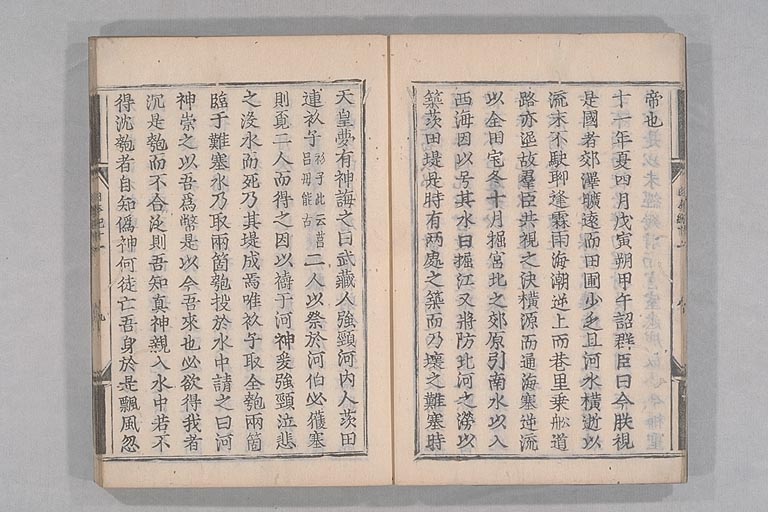 帝也
十一年夏四月戊寅朔甲午詔群臣曰今朕視
是國者郊澤曠遠而田圃少乏且河水橫逝以
流末不駃聊逢霖雨海潮逆上而巷里乗舩道
路亦埿故羣臣共視之決横源而通海塞逆流
以全田宅冬十月掘宮北之郊原引南水以入
西海因以号其水曰掘江又將防北河之澇以
築茨田堤是時有两處之築而乃壞之難塞時
天皇夢有神誨之曰武藏人強頸河内人茨田
連衫子 衫子此云莒呂母能古 二人以祭於河伯必獲塞
則覓二人而得之因以禱于河神爰強頸泣悲
之没水而死乃其堤成焉唯衫子取全匏兩箇
臨于難塞水乃取兩箇匏投於水中請之曰河
神祟之以吾爲幣是以今吾來也必欲得我者
沉是匏而不令泛則吾知真神親入水中若不
得沈匏者自知僞神何徒亡吾身於是飄風忽